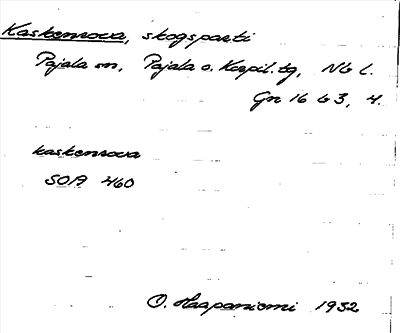 Kaskenrova, skogsparti
Pajala sn, Pajala o. Korpil. tg, Nb l.
Gn 16 b 3, 4.
kaskenrova
SOA 460
O. Haapaniemi 1932